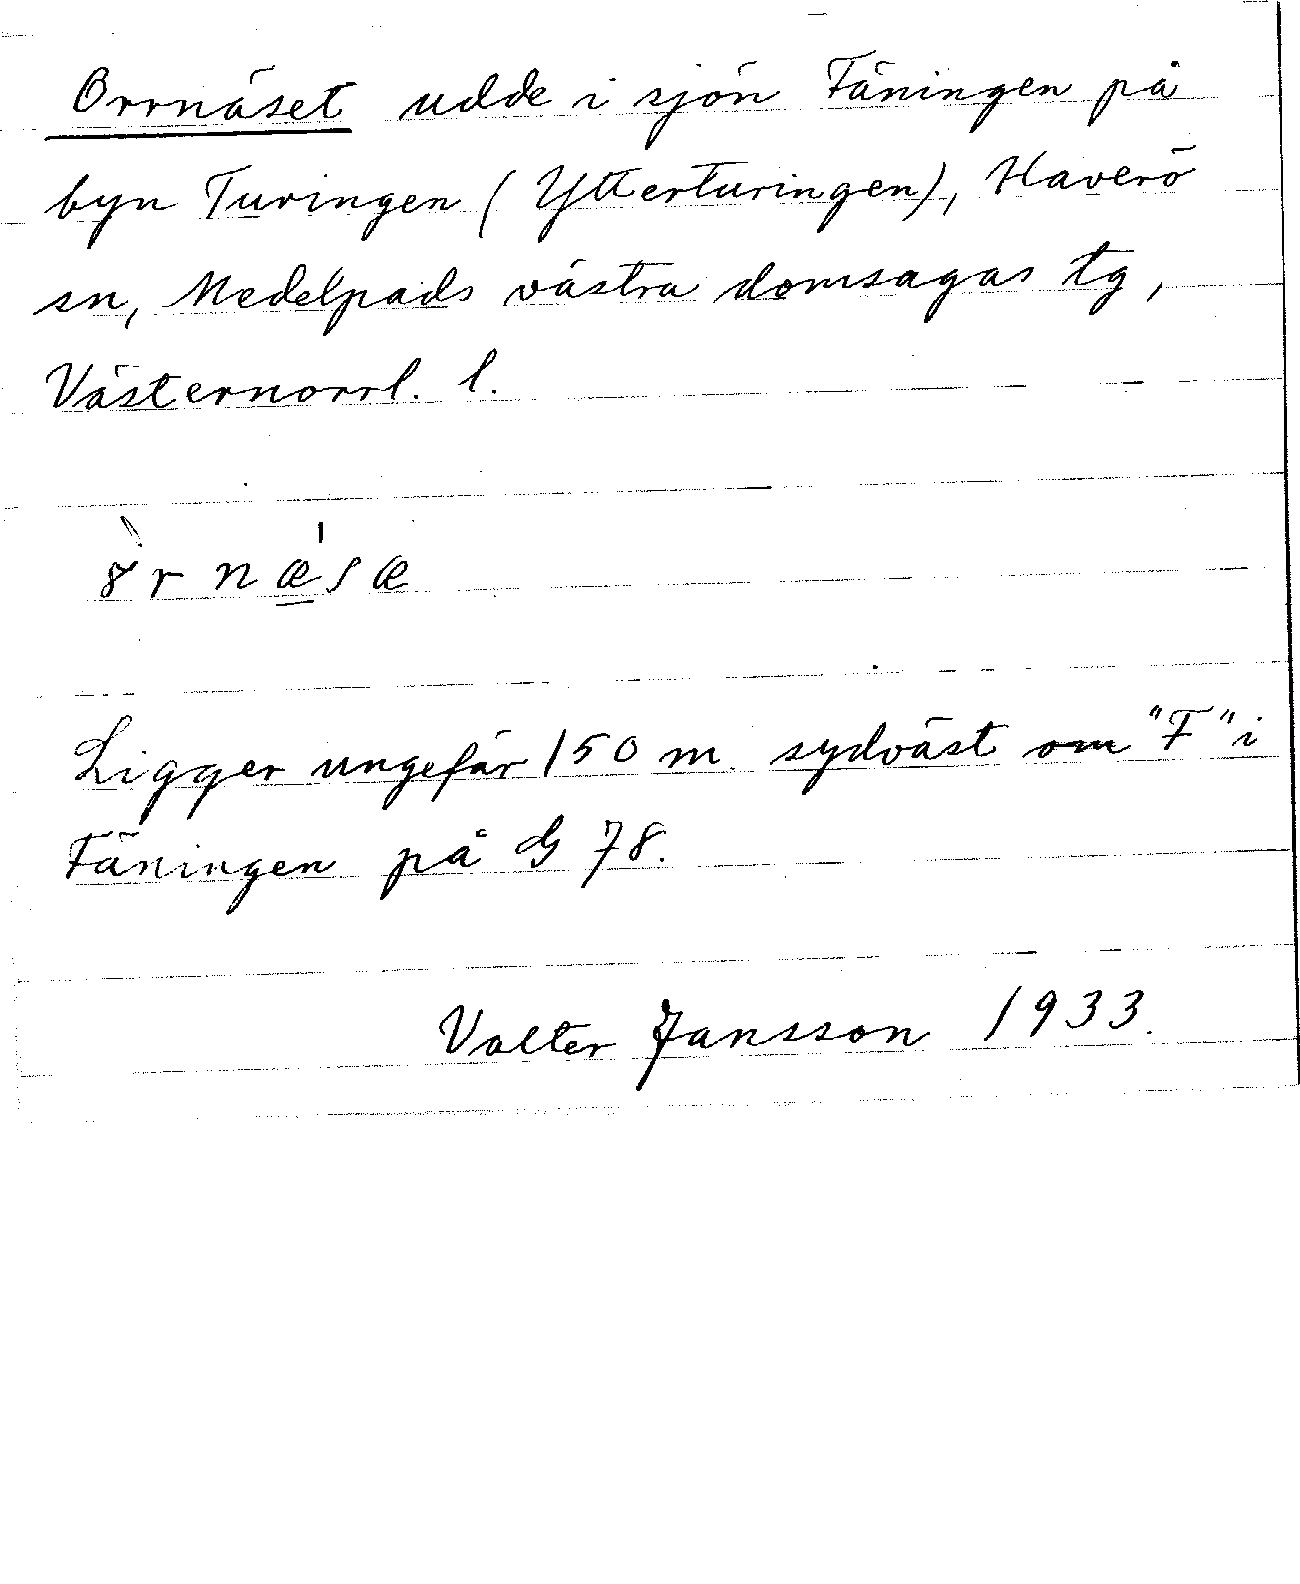 Orrnäset udde i sjön Fäningen på
byn Turingen (Ytterturingen), Haverö
sn, Medelpads västra domsagas tg,
Västernorrl. l.
Ligger ungefär 150 m. sydväst om "F" i
Fäningen på G 78.
Valter Jansson 1933.